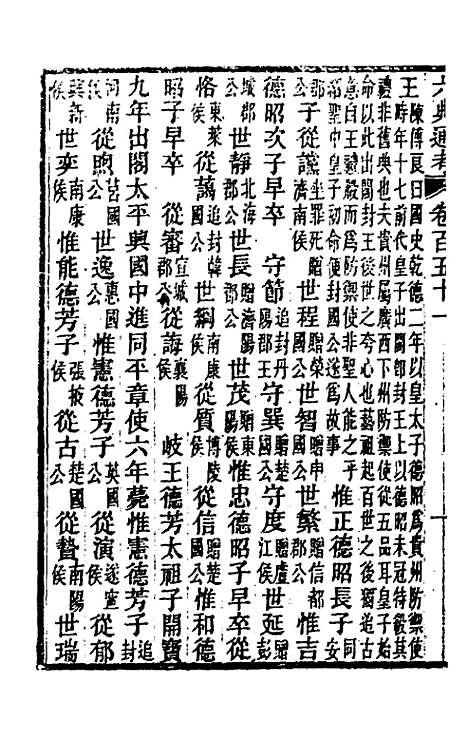 六典通考 卷百五十一
王陳傅良曰國史乾德二年以皇太子德昭爲貴州防禦使
時年十七前代皇子出閣卽封王上以德昭未冠特殺其
禮非舊典也夫貴州屬廣西下州防禦使從五品耳皇子始
命以此出閣封王後世之夸心也藝祖起百世之後獨追古
意自王禮殺而爲防禦使非聖人能之乎 惟正德昭長子安同
郡聖中皇子初命便封國公遂爲故事
公子從讜坐罪死贈濟南侯 世程贈榮國公 世智贈申國公 世繁贈信都侯 惟吉
德昭次子早卒 守節追封丹陽郡王 守巽贈楚國公 守度贈盧江侯 世延贈彭
城郡公 世靜北海郡公 世長贈濟陽郡公 世茂贈東陽侯 惟忠德昭子早卒從
恪東萊侯 從藹追封韓國公 世綱南康侯 從質博陵侯 從信贈楚國公 惟和德
昭子早卒 從審宣城郡公 從誨襄陽侯 岐王德芳太祖子開寶
九年出閣太平興國中進同平章使六年薨惟憲德芳子追封
河南侯 從煦莒國公 世逸惠國公 惟憲德芳子英國公 從演遂寧侯 從郁
侯新興侯 世奕南康侯 惟能德芳子張掖侯 從古楚國公 從贄南陽侯 世瑞